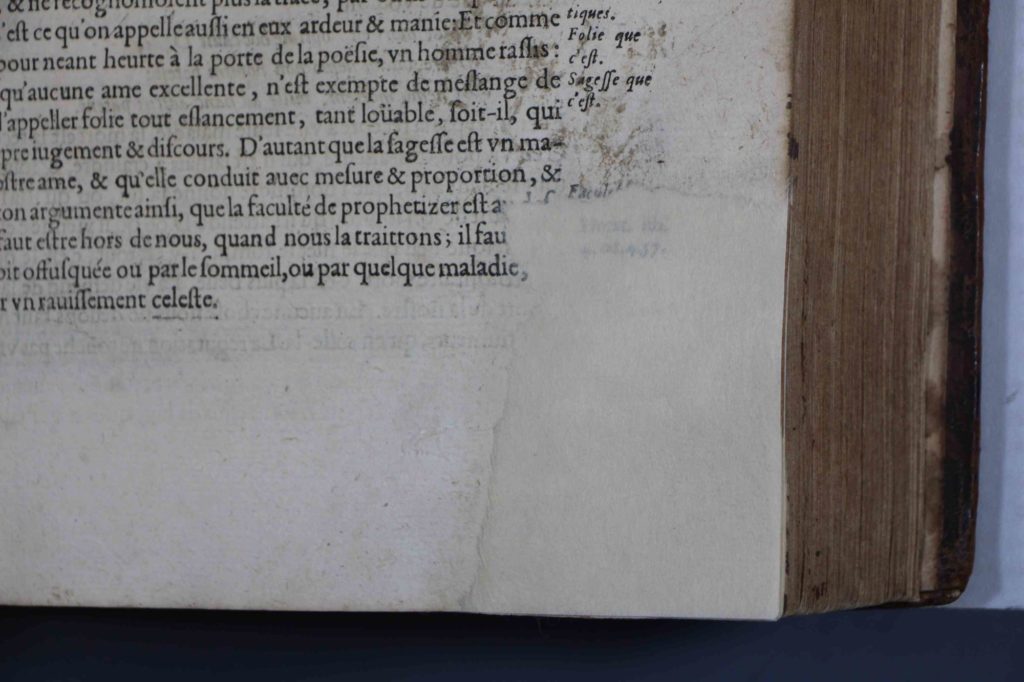 , & ne recognoissoient plus la trace, par
'est ce qu'on appelle aussi en eux ardeur & manie: Et comme
pour neant heurte à la porte de la poësie, vn homme rassis:
qu'aucune ame excellente, n'est exempte de meslange de
l'appeller folie tout eslancement, tant loüable, soit-il, qui
pre iugement & discours. D'autant que la sagesse est vn ma-
ostre ame, & qu'elle conduit auec mesure & proportion, &
on argumente ainsi, que la faculté de prophetizer est a
faut estre hors de nous, quand nous la traittons; il fau
oit offusquée ou par le sommeil, ou par quelque maladie,
r vn rauissement celeste.
tiques.
Folie que
c'est.
Sagesse que
c'est.
Facul